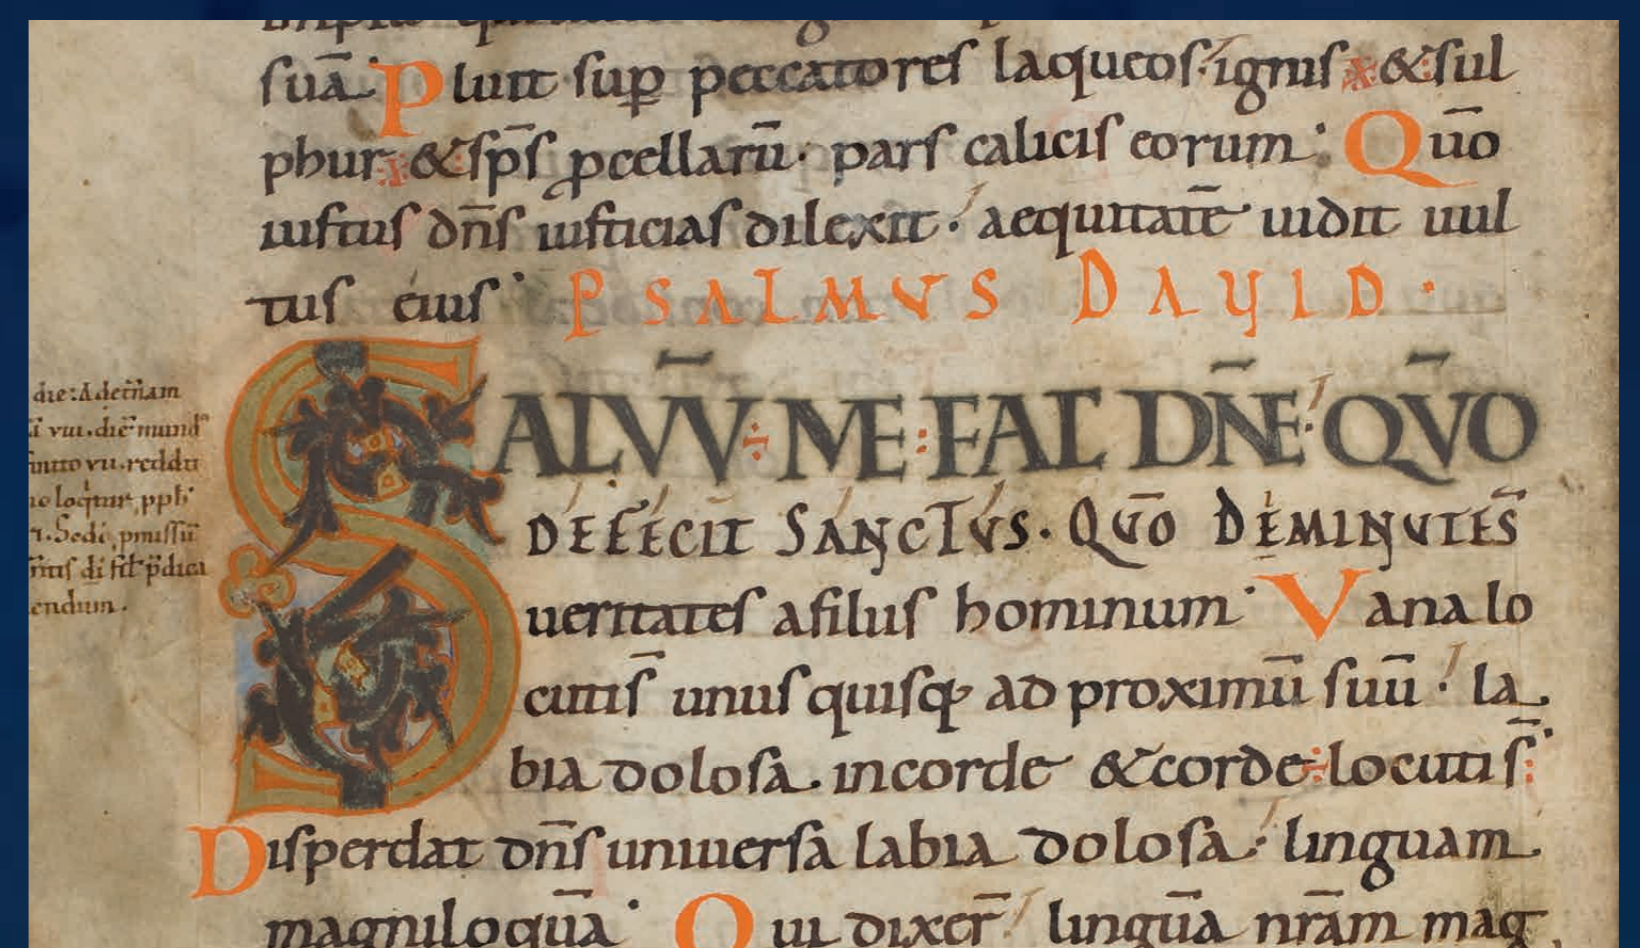 suā. Pluit sup peccatores laqueos. ignis & sul
phur & sp̄s pcellarū. pars calicis eorum. Quō
iustus dn̄s iusticias dilexit. aequitatē uidit uul
tus eius. PSALMVS DAVID.
SALVV̄ ME FAC DN̄E QV̄O
DEFECIT SANCTVS. QVŌ DEMINVTĒS
ueritates afilus hominum. Vana lo
cutis̄ unusquisq; ad proximū suū. la
bia dolosa. incorde & corde locutis̄
Disperdat dn̄s uniuersa labia dolosa. linguam
magniloquā. Qui dixer̄ linguā nrām mag
die: Ad etr̄nam
vııı. diē mund
vıı. reddit
loqitur pph
Sedi pmissū
di fil p̄dica
endum.